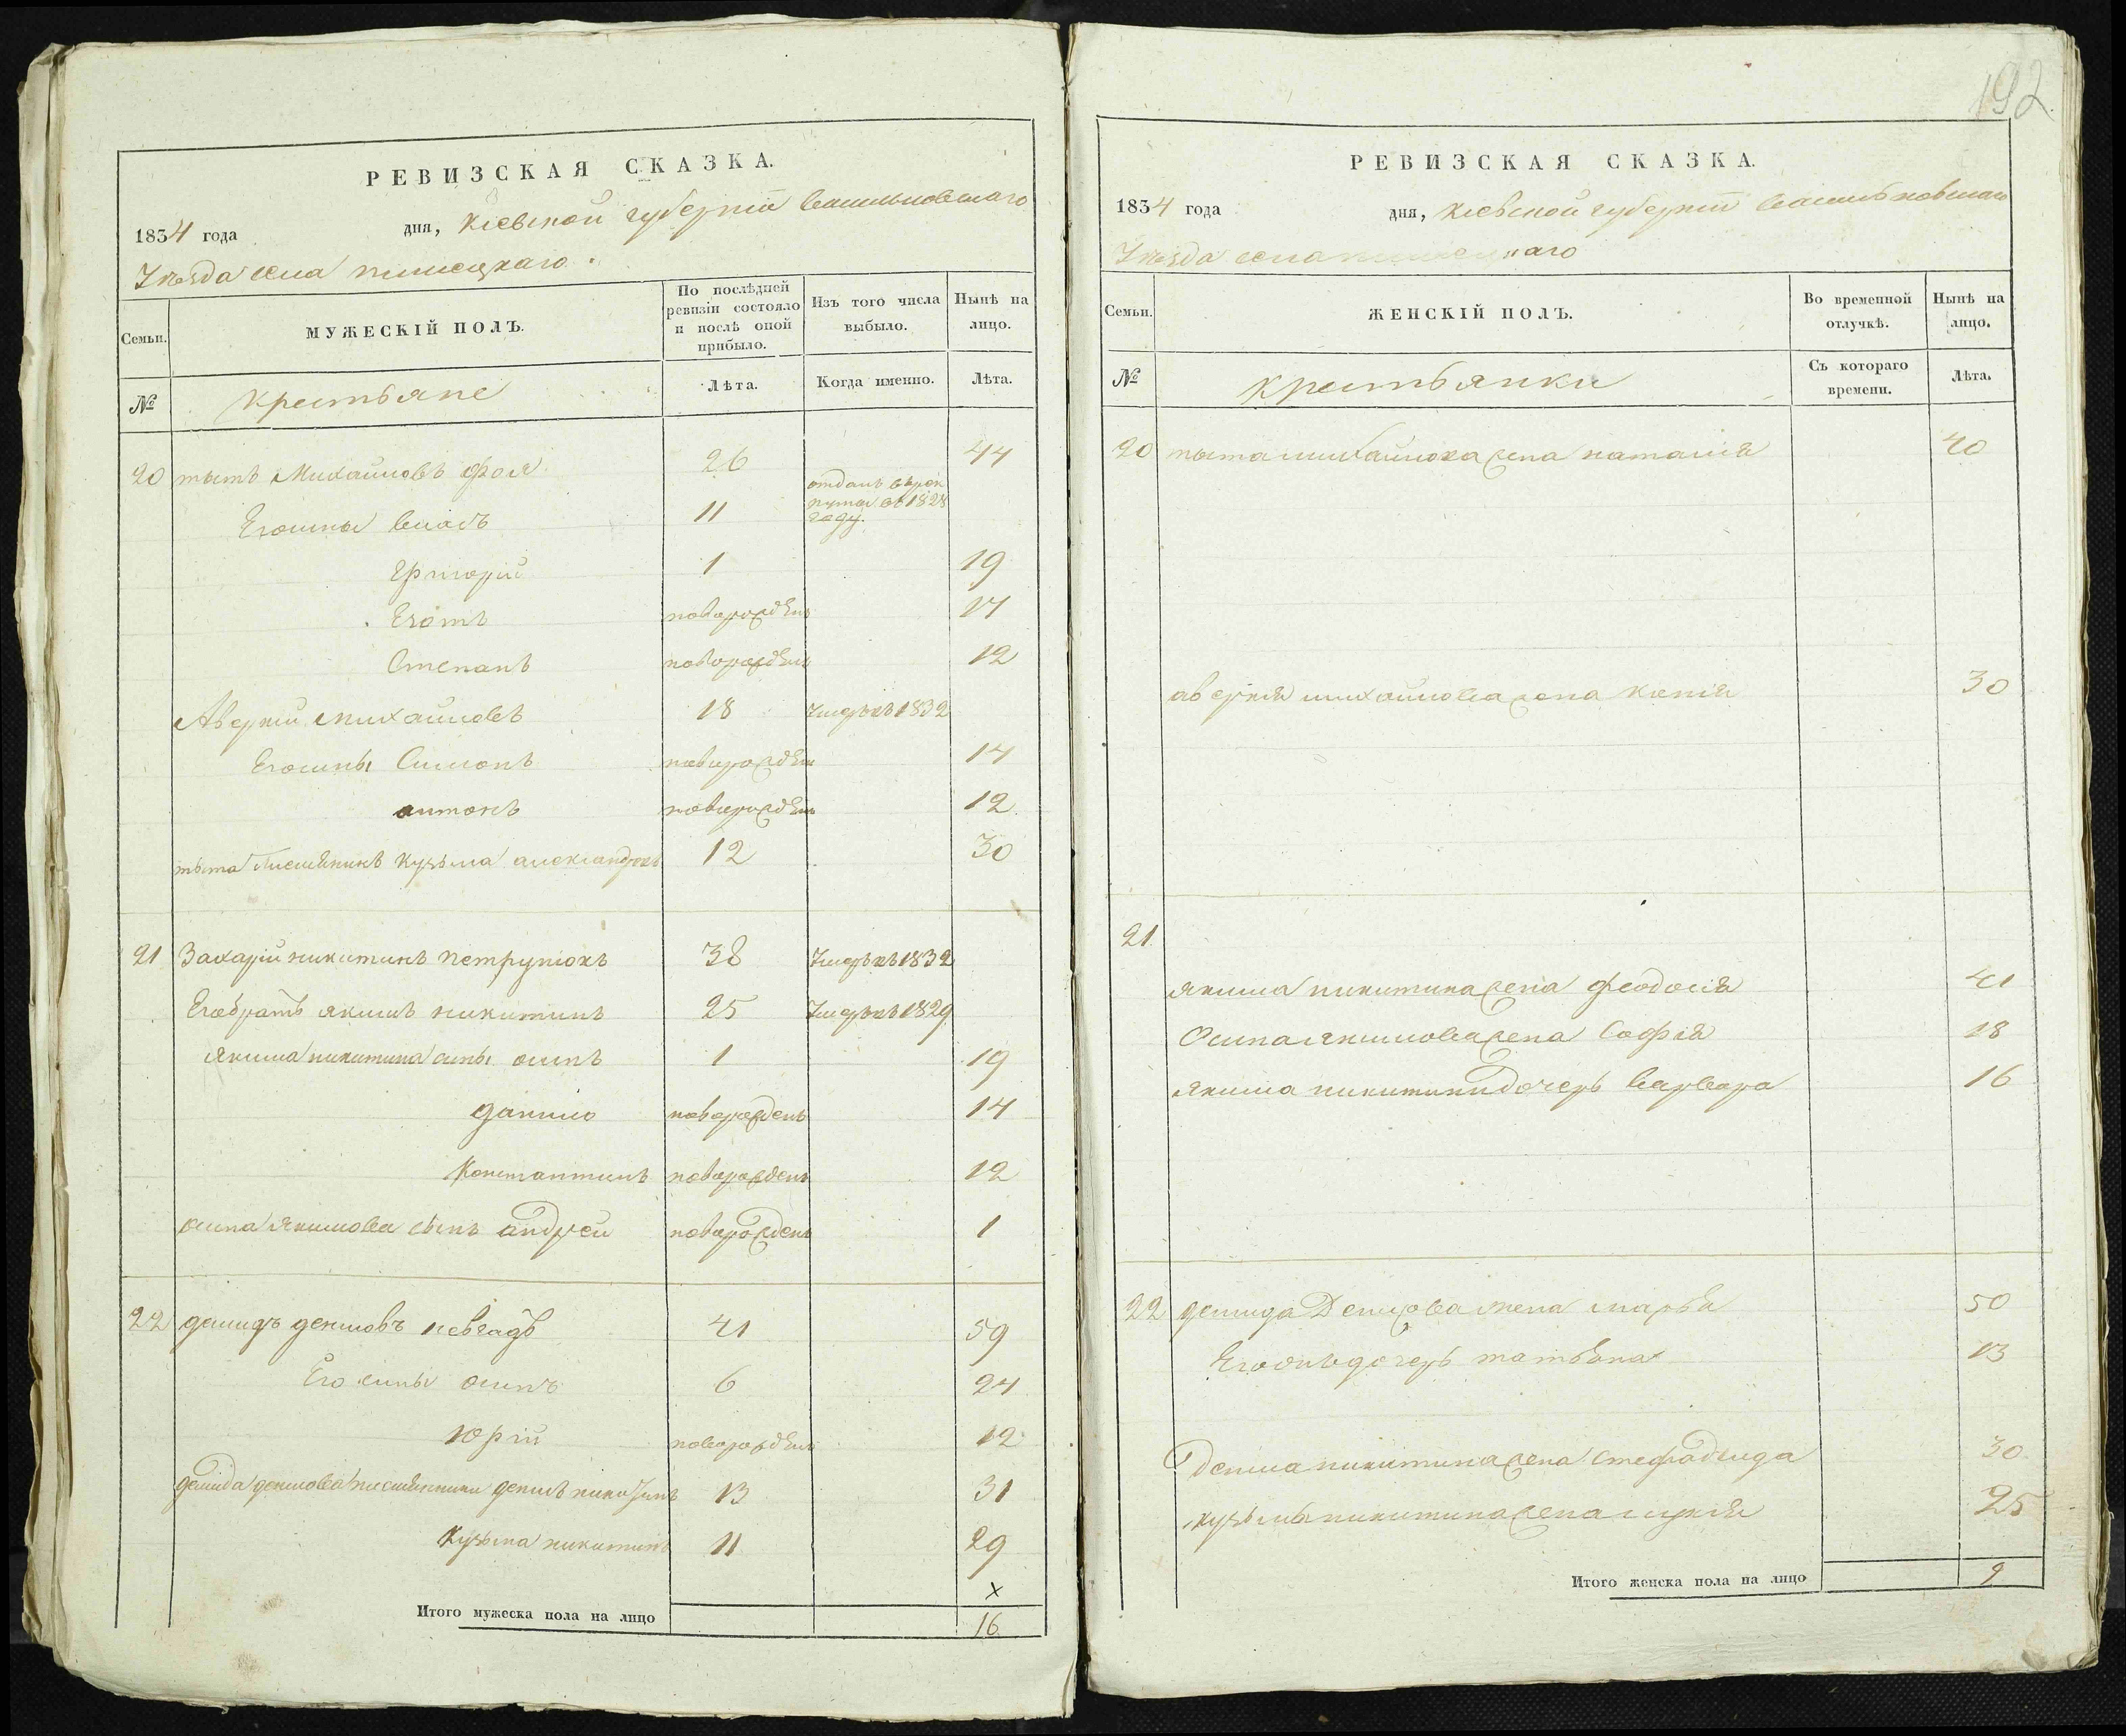 РЕВИЗСКАЯ СКАЗКА.
1834 года дня, Кіевской губерніи Васильковскаго
Уѣзда села
Семьи.
МУЖЕСКІЙ ПОЛЪ.
По послѣдней ревизіи состояло и послѣ оной прибыло.
Изъ того числа выбыло.
Нынѣ на лицо.
№
крестьяне
Лѣта.
Когда именно.
Лѣта.
20 Михайловъ 26 44
Его сины Власъ 11 отданъ въ рекруты въ 1828 году.
Григорій 1 19
новорожденъ 17
Степанъ новорожденъ 12
Аверкий михайловъ 18 Умеръ въ 1832
Его сины Симонъ новорожденъ 14
антонъ новорожденъ 12
тыта племѣникъ кузьма александровъ 12 30
21 Захарій никитинъ Петрунюкъ 38 Умеръ въ 1832
Его братъ якимъ никитинъ 25 Умеръ въ 1829
якима никитина сины осипъ 1 19
данило новорожденъ 14
Константинъ новорожденъ 12
осипа якимова сынъ андрей новорожденъ 1
22 демидъ денисовъ 41 59
Его сины осипъ 6 24
Юрій новорожденъ 12
демида денисова племѣнники денисъ никитинъ 13 31
Кузьма никитинъ 11 29
х
Итого мужеска пола на лицо 16
192
РЕВИЗСКАЯ СКАЗКА.
1834 года дня, Кіевской губерніи Васильковскаго
Уѣзда села
Семьи.
ЖЕНСКІЙ ПОЛЪ.
Во временной отлучкѣ.
Нынѣ на лицо.
№
крестьянки
Съ котораго времени.
Лѣта.
20 тыта михайлова жена наталія 40
аверкия михайлова жена ксенія 30
21
якима никитина жена феодосія 41
Осипа якимова жена Софія 18
якима никитина дочерь варвара 16
22 демида Денисова жена марья 50
Его дочерь татьяна 13
Дениса никитина жена 30
кузьмы никитина жена 25
Итого женска пола на лицо 9